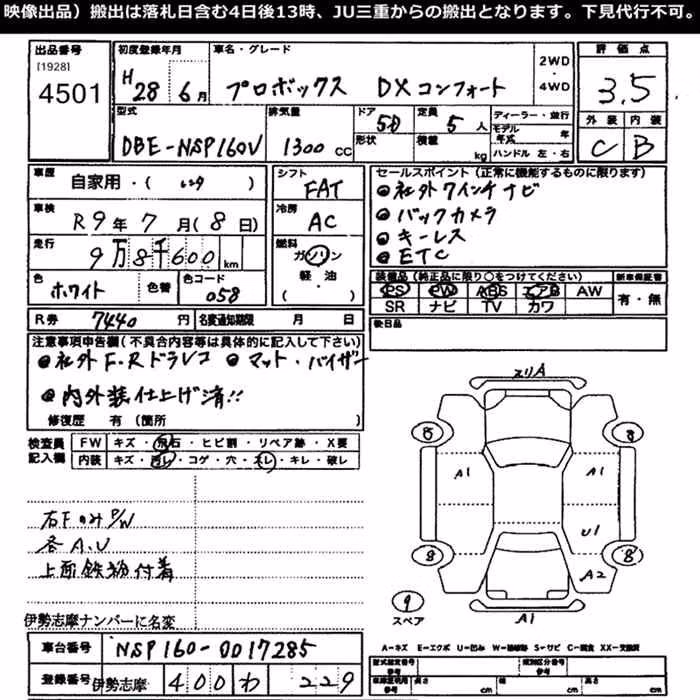 映像出品）搬出は落札日含む4日後13時、JU三重からの搬出となります。下見代行不可。
出品番号 初度登録年月 車名・グレード 2WD・4WD 評価点
[1928]
4501 H28 6月 プロボックス DXコンフォート 3.5
型式 排気量 ドア 定員 ディーラー・並行 外装 内装
DBE-NSP160V 1300cc 5D 5人 モデル年式 年 C B
形状 積載 kg ハンドル 左・右
車歴 自家用・( ) シフト FAT
車検 R9年7月(8日) 冷房 AC
走行 9万8千600km 燃料 ガソリン 軽・油 ( )
色 ホワイト 色替 色コード 058
R券 7440円 名変通知期限 月 日
セールスポイント（正常に機能するものに限ります）
社外7インチナビ
バックカメラ
キーレス
ETC
装備品（純正品に限り○をつけてください） 新車保証書
PS PW ABS エアB AW 有・無
SR ナビ TV カワ
後日品
注意事項申告欄（不具合内容等は具体的に記入して下さい）
社外F.Rドラレコ マット・バイザー
内外装仕上げ済!!
修復歴 有（箇所 ）
検査員記入欄 FW キズ・飛石・ヒビ割・リペア跡・X要
内装 キズ・汚レ・コゲ・穴・スレ・キレ・破レ
右下のみP/W
各A.U
上面鉄粉付着
伊勢志摩ナンバーに名変
車台番号 NSP160-0017285
登録番号 伊勢志摩 400 わ 229
スリA
8 8
A1 A1
U1
8 8
A2
9
スペア
A1
A=キズ E=エクボ U=凹み W=補修跡 S=サビ C=腐食 XX=交換済
型式指定番号 類別区分番号
参考 参考
長さ cm 幅 cm 高さ cm
参考